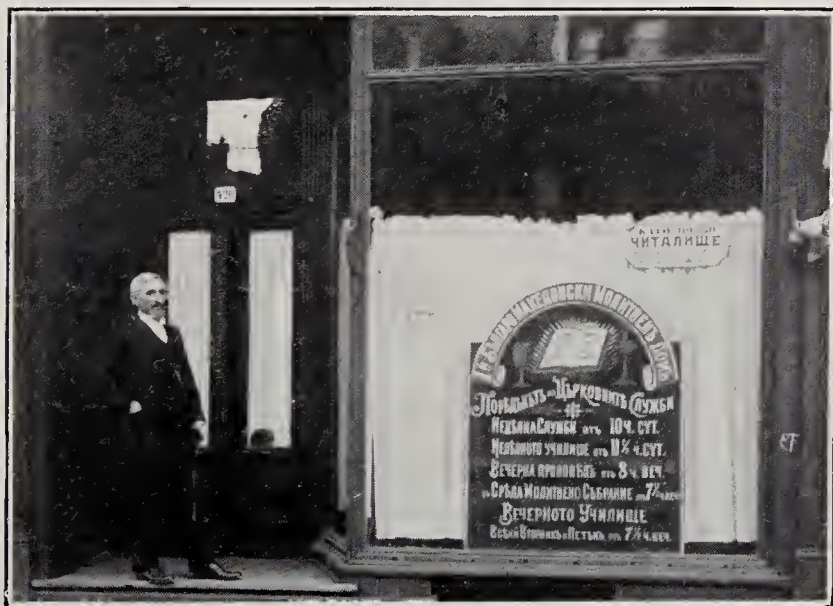 ЧИТАЛИЩЕ
МАКЕДОНСКИ МОЛИТВЕНЪ ДОМЪ
ПОРѢДЪКЪТЪ НА ЦЪРКОВНИТѢ СЛУЖБИ
НЕДѢЛНА СЛУЖБА ОТЪ 10 Ч. СУТ.
НЕДѢЛНОТО УЧИЛИЩЕ ОТЪ Ч. СУТ.
ВЕЧЕРНА ПРОПОВѢДЬ ОТЪ 8 Ч. ВЕЧ.
СРѢДА МОЛИТВЕНО СЪБРАНИЕ 7½
ВЕЧЕРНОТО УЧИЛИЩЕ
ВСѢКИ ВТОРНИКЪ И ПЕТЪКЪ ОТЪ 7½ Ч. ВЕЧ.